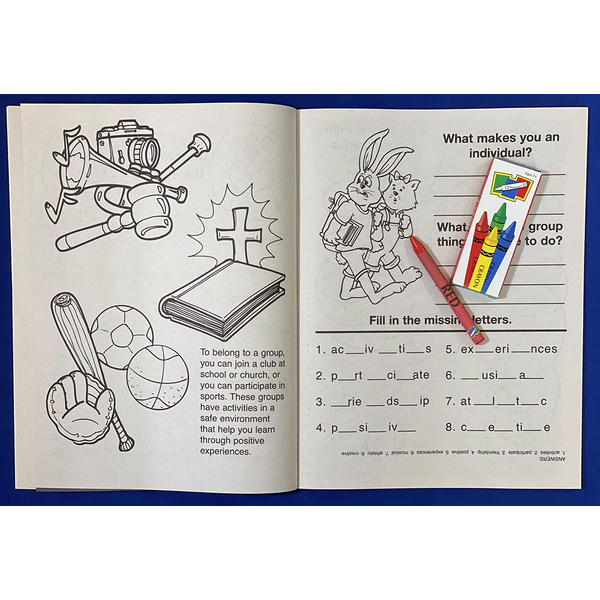 To belong to a group,
you can join a club at
school or church, or
you can participate in
sports. These groups
have activities in a
safe environment
that help you learn
through positive
experiences.
What makes you an
individual?
What group
thing to do?
Fill in the missing letters.
1. ac__iv __ti__s
2. p__rt __ci__ate
3. __rie __ds__ip
4. p__si __iv__
5. ex__eri __nces
6. __usi__a__
7. at__l__t__c
8. c__e__ti__e
ANSWERS:
1. activities 2. participate 3. friendship 4. positive 5. experiences 6. musical 7. athletic 8. creative
RED
CRAYON